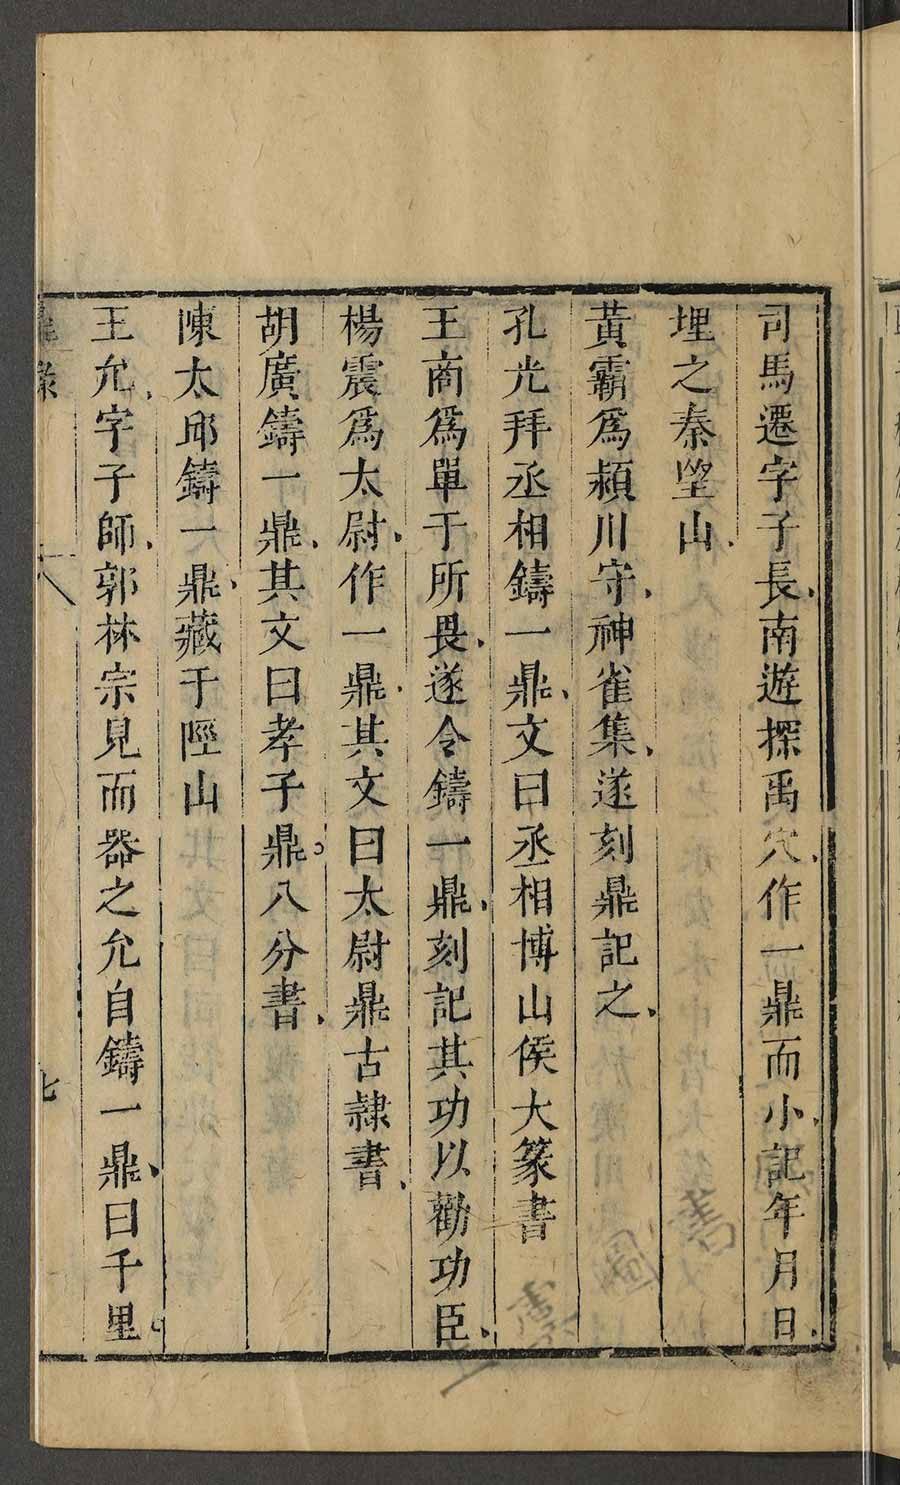 司馬遷字子長南遊探禹穴作一鼎而小記年月日
埋之秦望山
黃霸爲潁川守神雀集遂刻鼎記之
孔光拜丞相鑄一鼎文曰丞相博山侯大篆書
王商爲單于所畏遂令鑄一鼎刻記其功以勸功臣
楊震爲太尉作一鼎其文曰太尉鼎古隷書
胡廣鑄一鼎其文曰孝子鼎八分書
陳太邱鑄一鼎藏于陘山
王允字子師郭林宗見而器之允自鑄一鼎曰千里
鼎錄
七